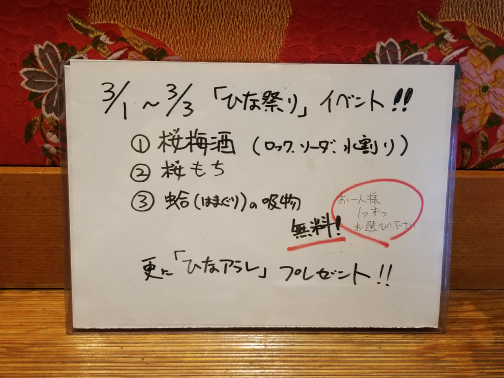 3/1～3/3 「ひな祭り」イベント!!
① 桜梅酒 (ロック、ソーダ、水割り)
② 桜もち
③ 蛤(はまぐり)の吸物
無料!
お一人様
1つずつ
お選び下さい
更に「ひなアラレ」プレゼント!!